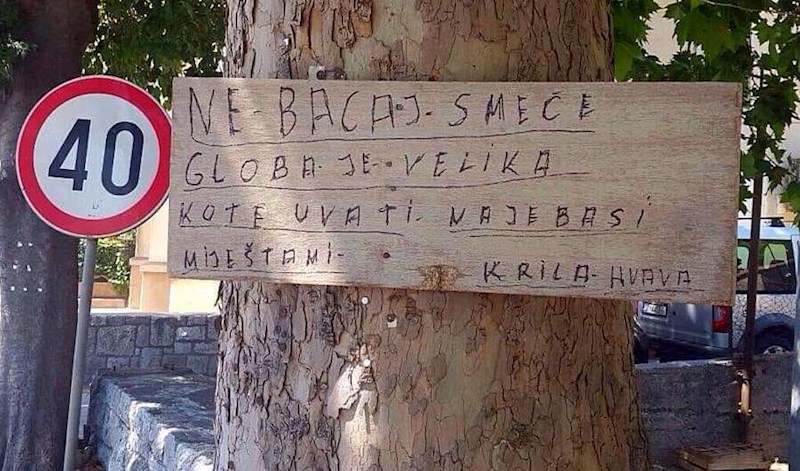 40
NE-BACAJ-SMEČE
GLOBA-JE-VELIKA
KOTE UVATI-NAJEBASI
MIJEŠTAMI-
KRILA-HVAVA